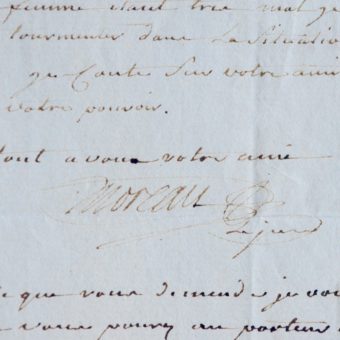 femme étant tres mal je
tourmenter dans la Situatio
je Conte Sur votre ami
votre pouvoir.
tout a vous votre ami
Moreau
Le jeune
que vous demande je vou
vous pouvez au porteur